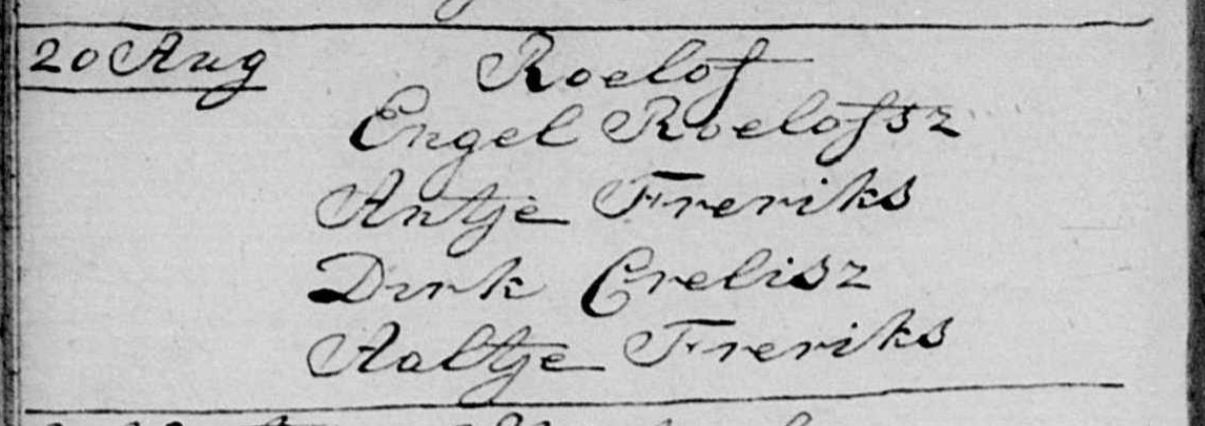 20 Aug Roelof
Engel Roelofsz
Antje Freriks
Dirk Crelisz
Aaltje Freriks